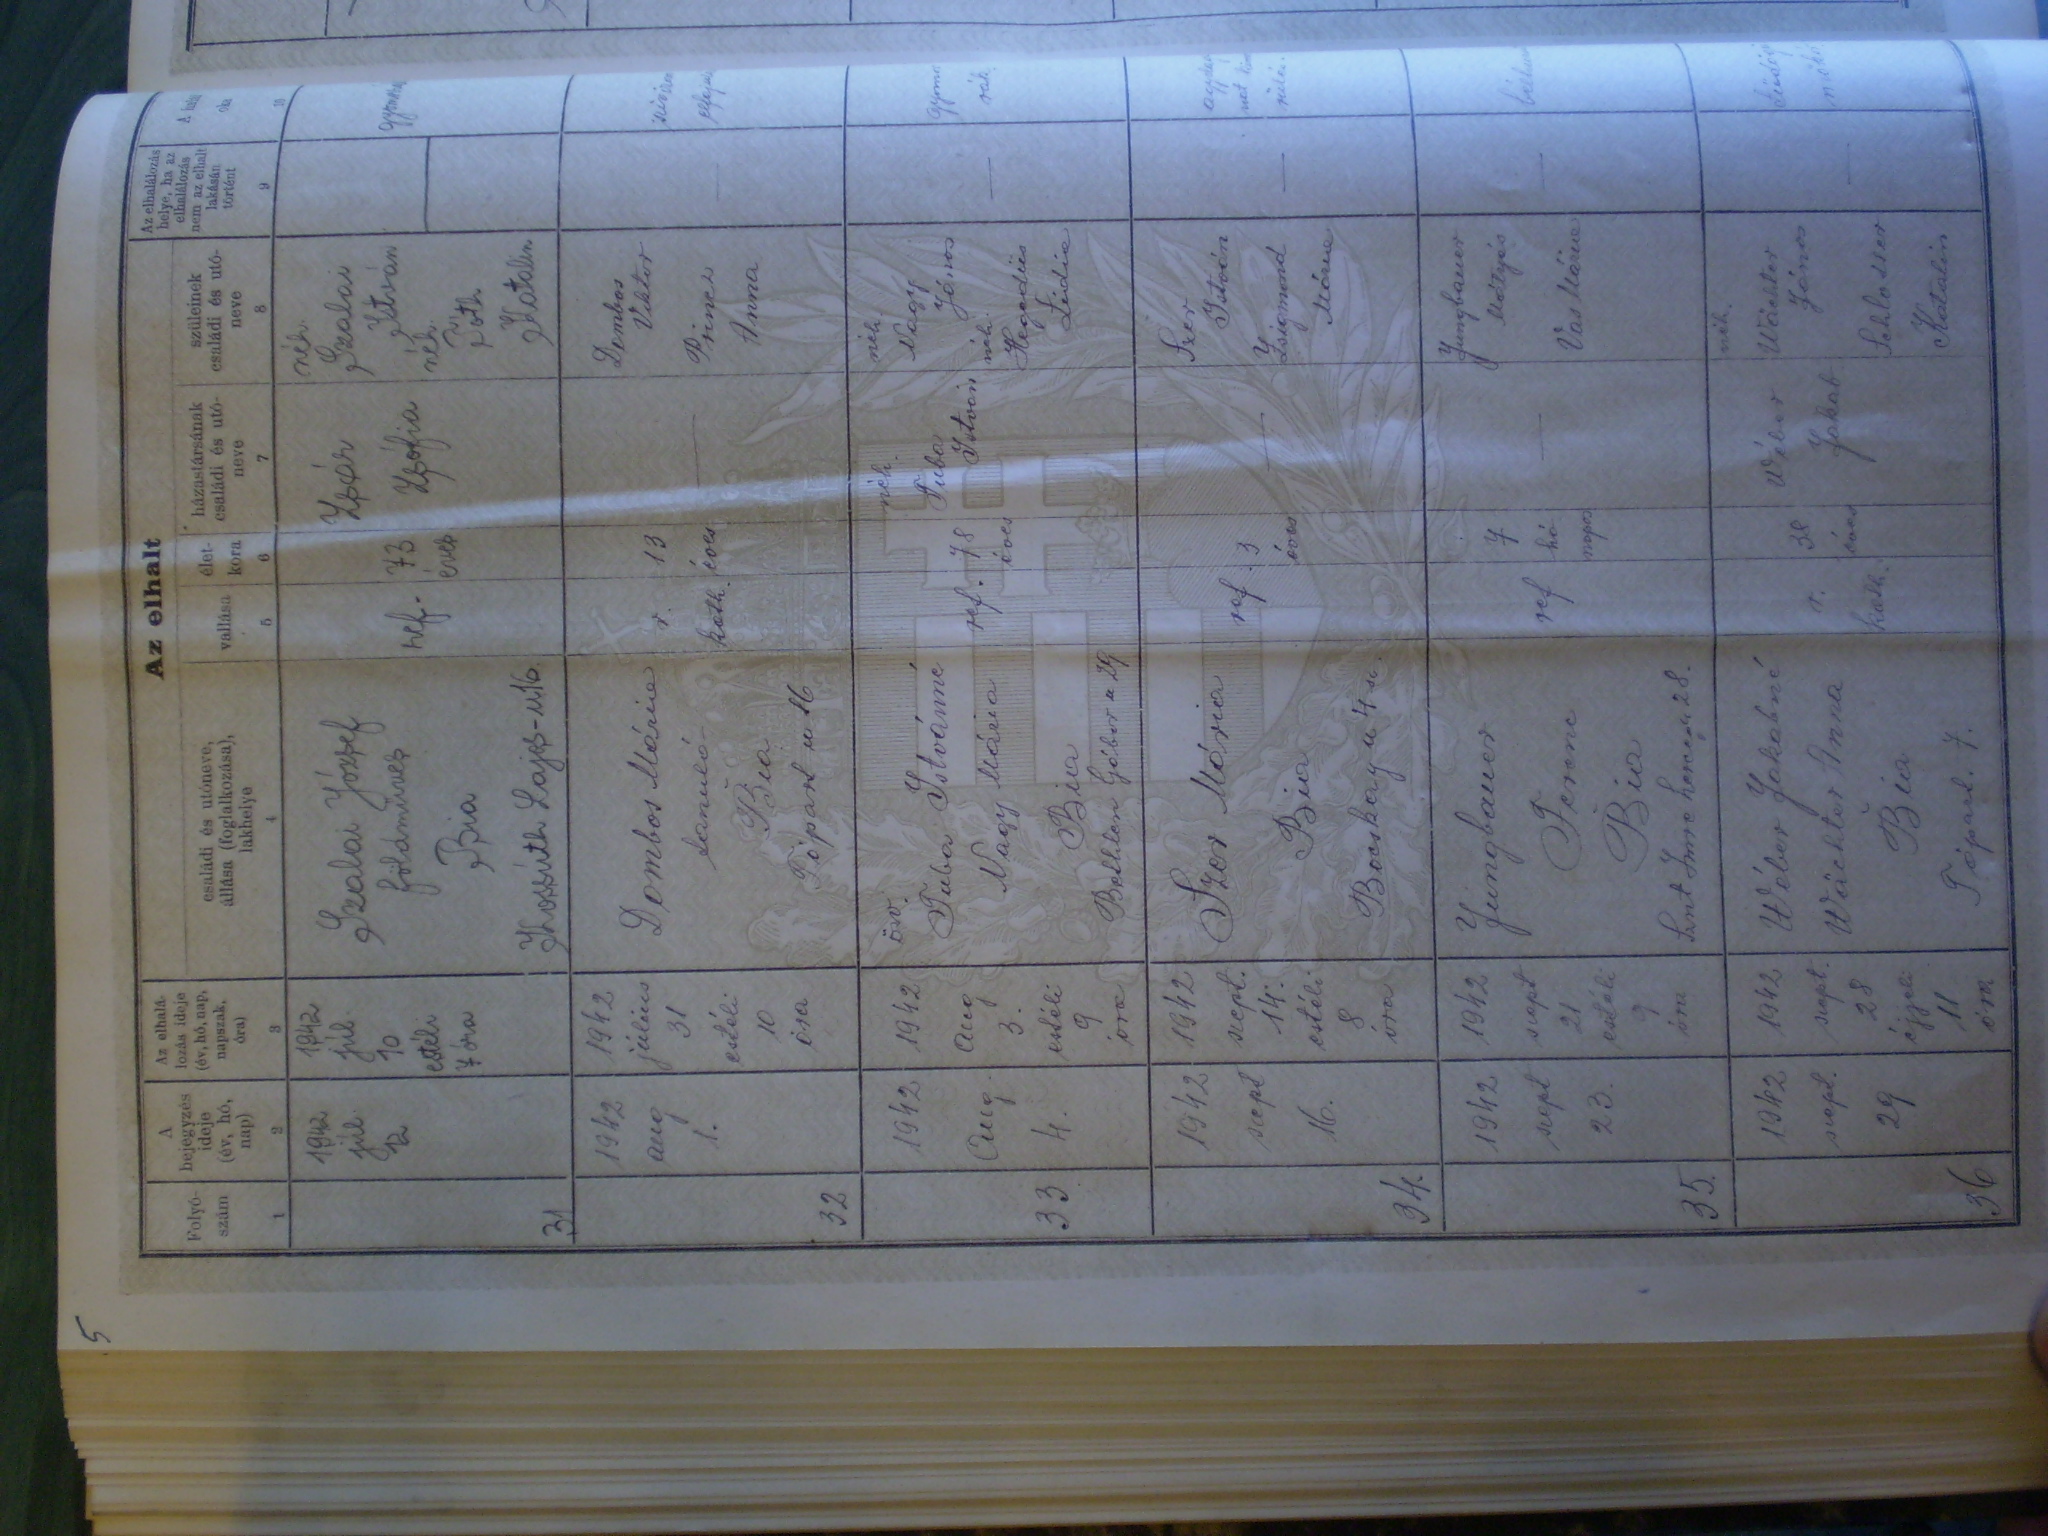 5
Az elhalt
Folyó-
szám
A
bejegyzés
ideje
(év, hó,
nap)
Az elhalá-
lozás ideje
(év, hó, nap,
napszak,
óra)
családi és utóneve,
állása (foglalkozása),
lakhelye
vallása
élet-
kora
házastársának
családi és utó-
neve
szüleinek
családi és utó-
neve
Az elhalálozás
helye, ha az
elhalálozás
nem az elhalt
lakásán
történt
A halál
oka
1
2
3
4
5
6
7
8
9
10
31
1942
júl.
12
1942
júl.
10
estéli
7 óra
Szabai József
földműves
Bia
Kossúth Lajos-u.16.
ref.
73
éves
Zsófia
néh.
Szabai
István
néh.
Tóth
Katalin
32
1942
aug
1.
1942
július
31
estéli
10
óra
Dombos Mária
tanuló
Bia
Tópark u 16
r.
kath.
13
éves
—
Dombos
Viktor
Anna
—
33
1942
Aug.
4.
1942
aug
3.
estéli
9
óra
özv.
Tuba Istvánné
Nagy Mária
Bia
Bethlen Gábor u 29
ref.
78
éves
néh.
Tuba
István
néh.
Nagy
János
néh.
Hegedüs
Lidia
—
34.
1942
szept
16.
1942
szept.
14.
estéli
8
óra
Szer Mária
Bia
Bocskay u 4 sz.
ref.
3
éves
—
Szer
István
Zsigmond
Mária
—
35.
1942
szept
23.
1942
szept
21
estéli
9
óra
Jungbauer
Ferenc
Bia
Szent Imre herceg u 28.
ref
7
hó
napos
—
Jungbauer
Mátyás
Vas Mária
—
36
1942
szept.
29
1942
szept.
28
éjjeli
11
óra
Wéber Jakabné
Wächter Anna
Bia
Tópark. 7.
r.
kath.
38
éves
Wéber
Jakab
néh.
Wächter
János
Schlosser
Katalin
—